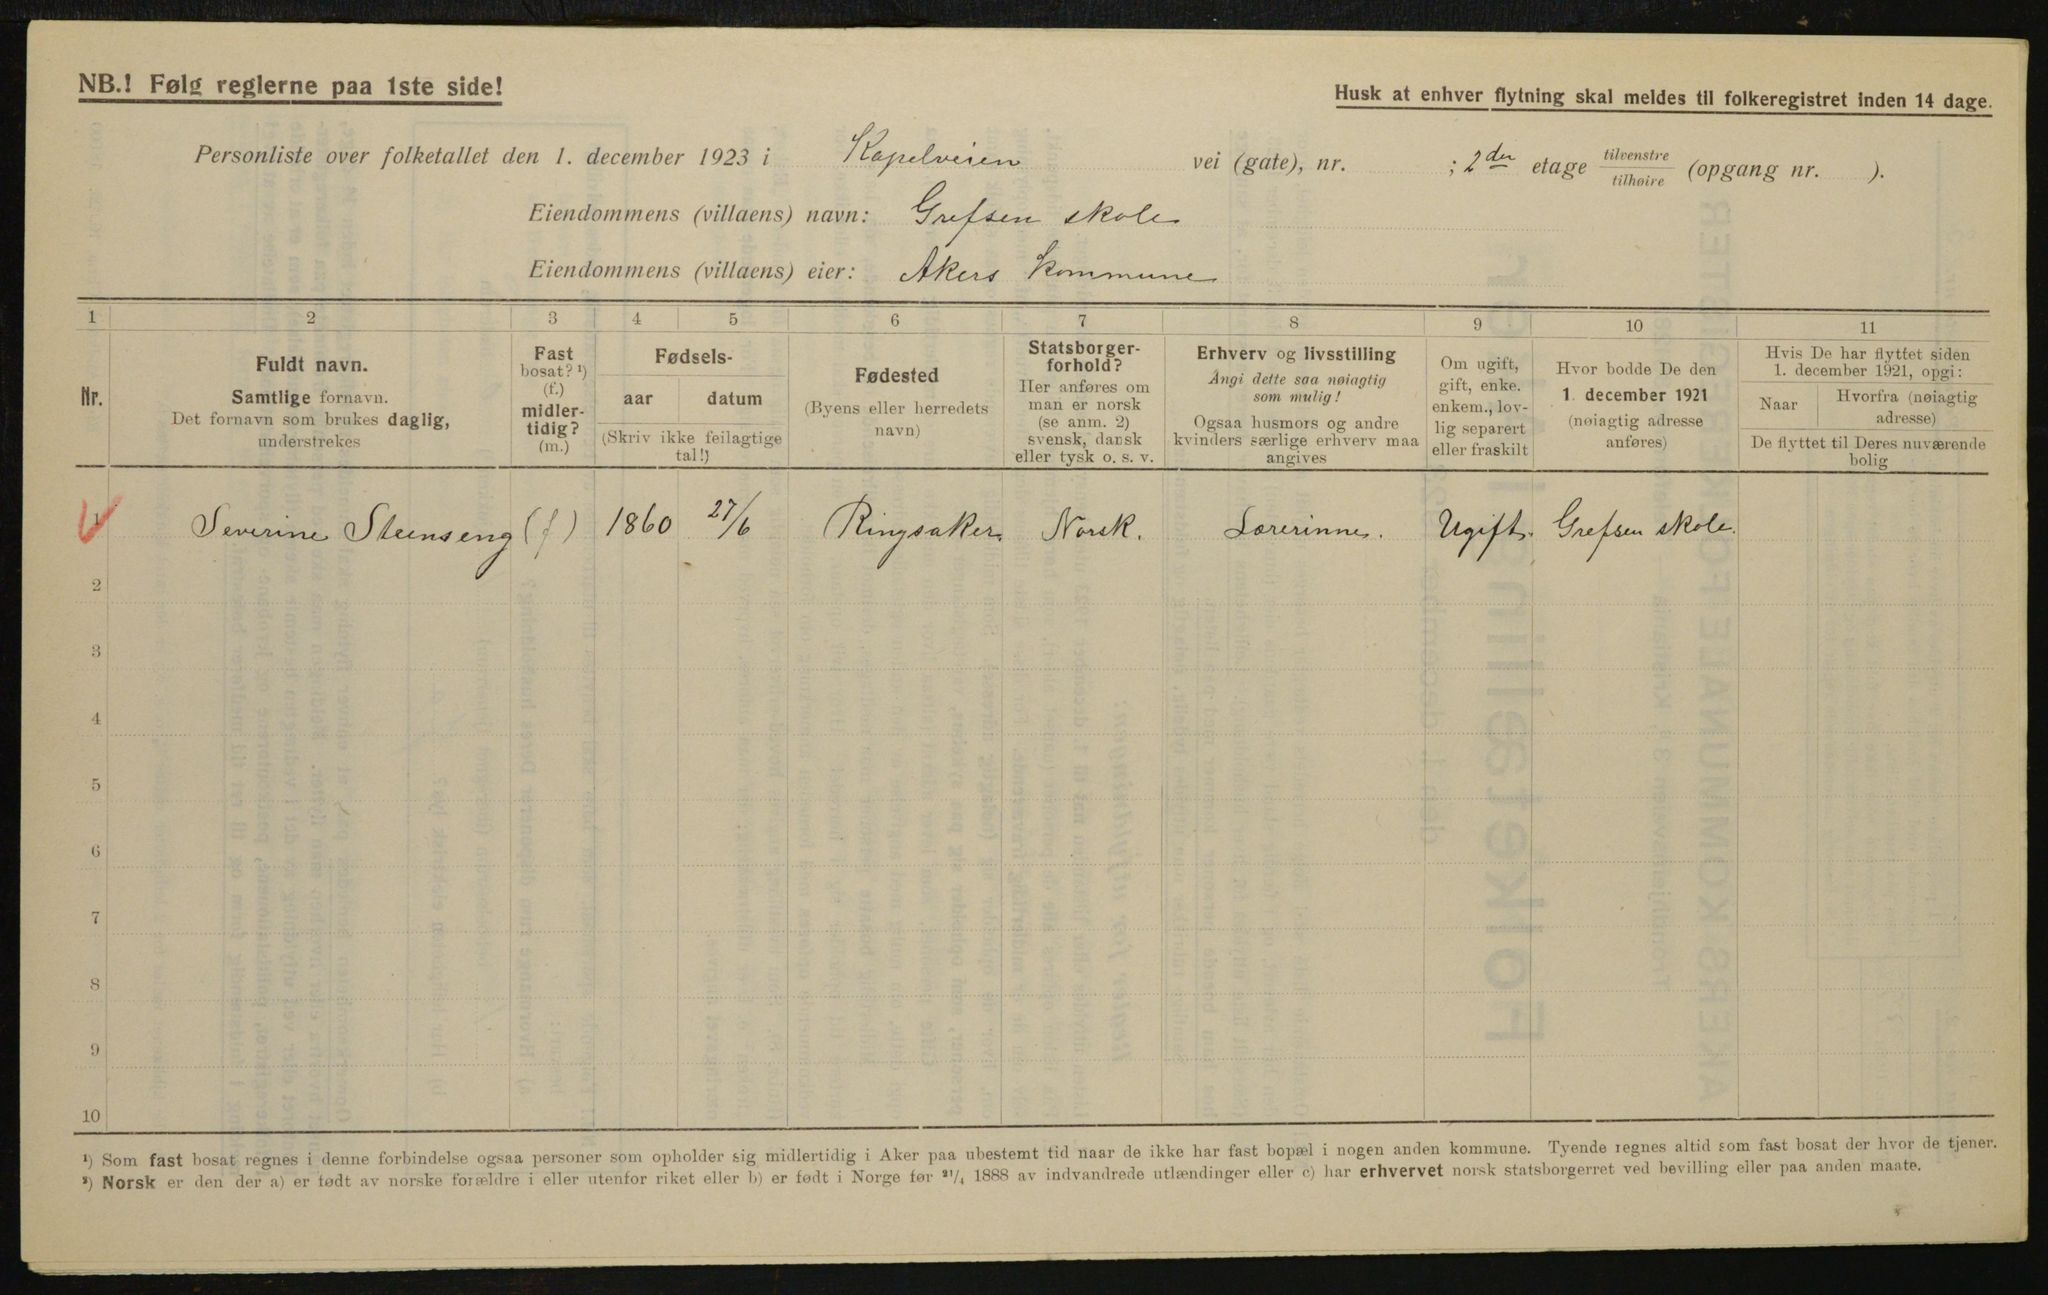 NB.! Følg reglerne paa 1ste side!
Husk at enhver flytning skal meldes til folkeregistret inden 14 dage.
Personliste over folketallet den 1. december 1923 i Kapelveien vei (gate), nr. ; 2den etage tilvenstre tilhøire (opgang nr. ).
Eiendommens (villaens) navn: Grefsen skole
Eiendommens (villaens) eier: Akers kommune
1 2 3 4 5 6 7 8 9 10 11
Nr.
Fuldt navn.
Samtlige fornavn.
Det fornavn som brukes daglig,
understrekes
Fast
bosat? ¹)
(f.)
midler-
tidig?
(m.)
Fødsels-
aar datum
(Skriv ikke feilagtige
tal!)
Fødested
(Byens eller herredets
navn)
Statsborger-
forhold?
Her anføres om
man er norsk
(se anm. 2)
svensk, dansk
eller tysk o. s. v.
Erhverv og livsstilling
Angi dette saa nøiagtig
som mulig!
Ogsaa husmors og andre
kvinders særlige erhverv maa
angives
Om ugift,
gift, enke.
enkem., lov-
lig separert
eller fraskilt
Hvor bodde De den
1. december 1921
(nøiagtig adresse
anføres)
Hvis De har flyttet siden
1. december 1921, opgi:
Naar
Hvorfra (nøiagtig
adresse)
De flyttet til Deres nuværende
bolig
1 Severine Steenseng (f) 1860 27/6 Ringsaker. Norsk. Lærerinne. Ugift. Grefsen skole.
2
3
4
5
6
7
8
9
10
¹) Som fast bosat regnes i denne forbindelse ogsaa personer som opholder sig midlertidig i Aker paa ubestemt tid naar de ikke har fast bopæl i nogen anden kommune. Tyende regnes altid som fast bosat der hvor de tjener.
²) Norsk er den der a) er født av norske forældre i eller utenfor riket eller b) er født i Norge før ²¹/₄ 1888 av indvandrede utlændinger eller c) har erhvervet norsk statsborgerret ved bevilling eller paa anden maate.